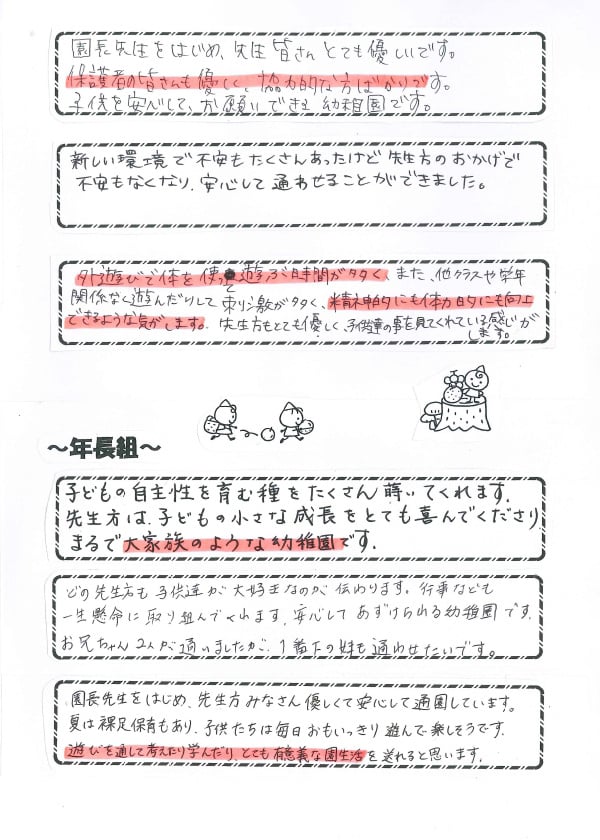 園長先生をはじめ、先生皆さんとても優しいです。
保護者の皆さんも優しく、協力的な方ばかりです。
子供を安心して、お願いできる幼稚園です。
新しい環境で不安もたくさんあったけど先生方のおかげで
不安もなくなり、安心して通わせることができました。
外遊びで体を使って遊ぶ時間が多く、また、他クラスや学年
関係なく遊んだりして刺激が多く、精神的にも体力的にも向上
できるような気がします。先生方もとても優しく子供達の事を見てくれている感じが
します。
～年長組～
子どもの自主性を育む種をたくさん蒔いてくれます。
先生方は、子どもの小さな成長をとても喜んでくださり
まるで大家族のような幼稚園です。
どの先生方も子供達が大好きなのが伝わります。行事なども
一生懸命に取り組んでくれます。安心してあずけられる幼稚園です。
お兄ちゃん2人が通いましたが、1番下の妹も通わせたいです。
園長先生をはじめ、先生方みなさん優しくて安心して通園しています。
夏は裸足保育もあり、子供たちは毎日おもいっきり遊んで楽しそうです。
遊びを通して考えたり学んだり、とても有意義な園生活を送れると思います。